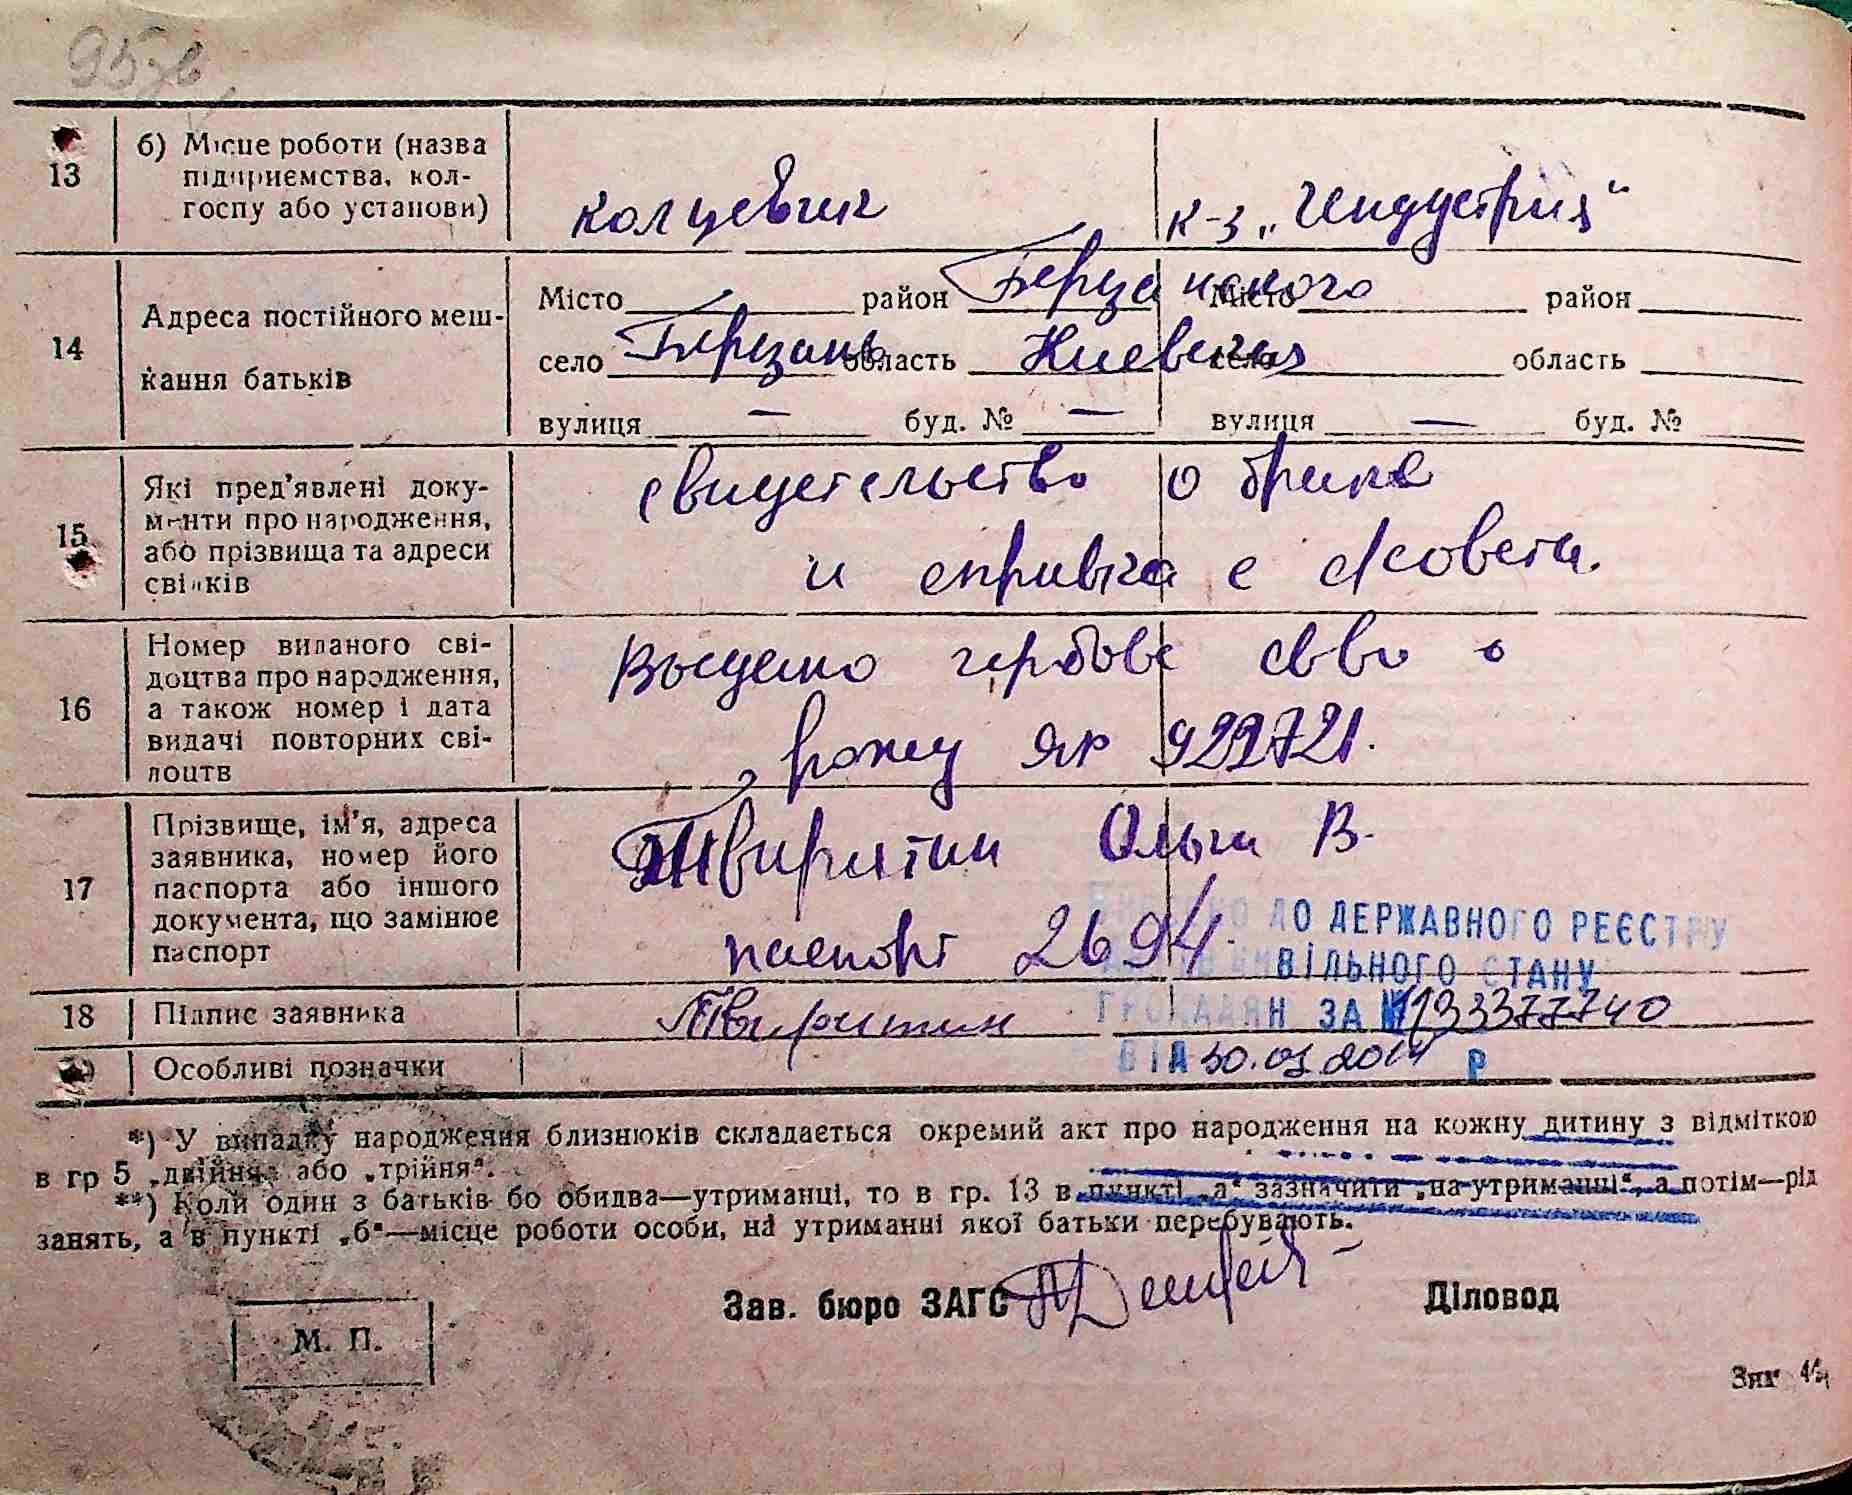 95зв
13
б) Місце роботи (назва
підприємства, кол-
госпу або установи)
к-з „Индустрия“
14
Адреса постійного меш-
кання батьків
Місто район Березанского Місто район
село Березань область Киевская село область
вулиця — буд. № — вулиця — буд. №
15
Які пред’явлені доку-
менти про народження,
або прізвища та адреси
свідків
свидетельство о браке
и справка с с/совета.
16
Номер виданого сві-
доцтва про народження,
а також номер і дата
видачі повторних сві-
доцтв
Выдано гербове св-во о
рожд ЯР 922721.
17
Прізвище, ім’я, адреса
заявника, номер його
паспорта або іншого
документа, що замінює
паспорт
Ольга В.
паспорт 2694.
18
Підпис заявника
Особливі позначки
ДО ДЕРЖАВНОГО РЕЄСТРУ
ЦИВІЛЬНОГО СТАНУ
ГРОМАДЯН ЗА №
ВІД Р
*) У випадку народження близнюків складається окремий акт про народження на кожну дитину з відміткою
в гр 5 „двійня“ або „трійня“.
**) Коли один з батьків бо обидва—утриманці, то в гр. 13 в пункті „а“ зазначити „на утриманні“, а потім—рід
занять, а в пункті „б“—місце роботи особи, на утриманні якої батьки перебувають.
Зав. бюро ЗАГС
Діловод
М. П.